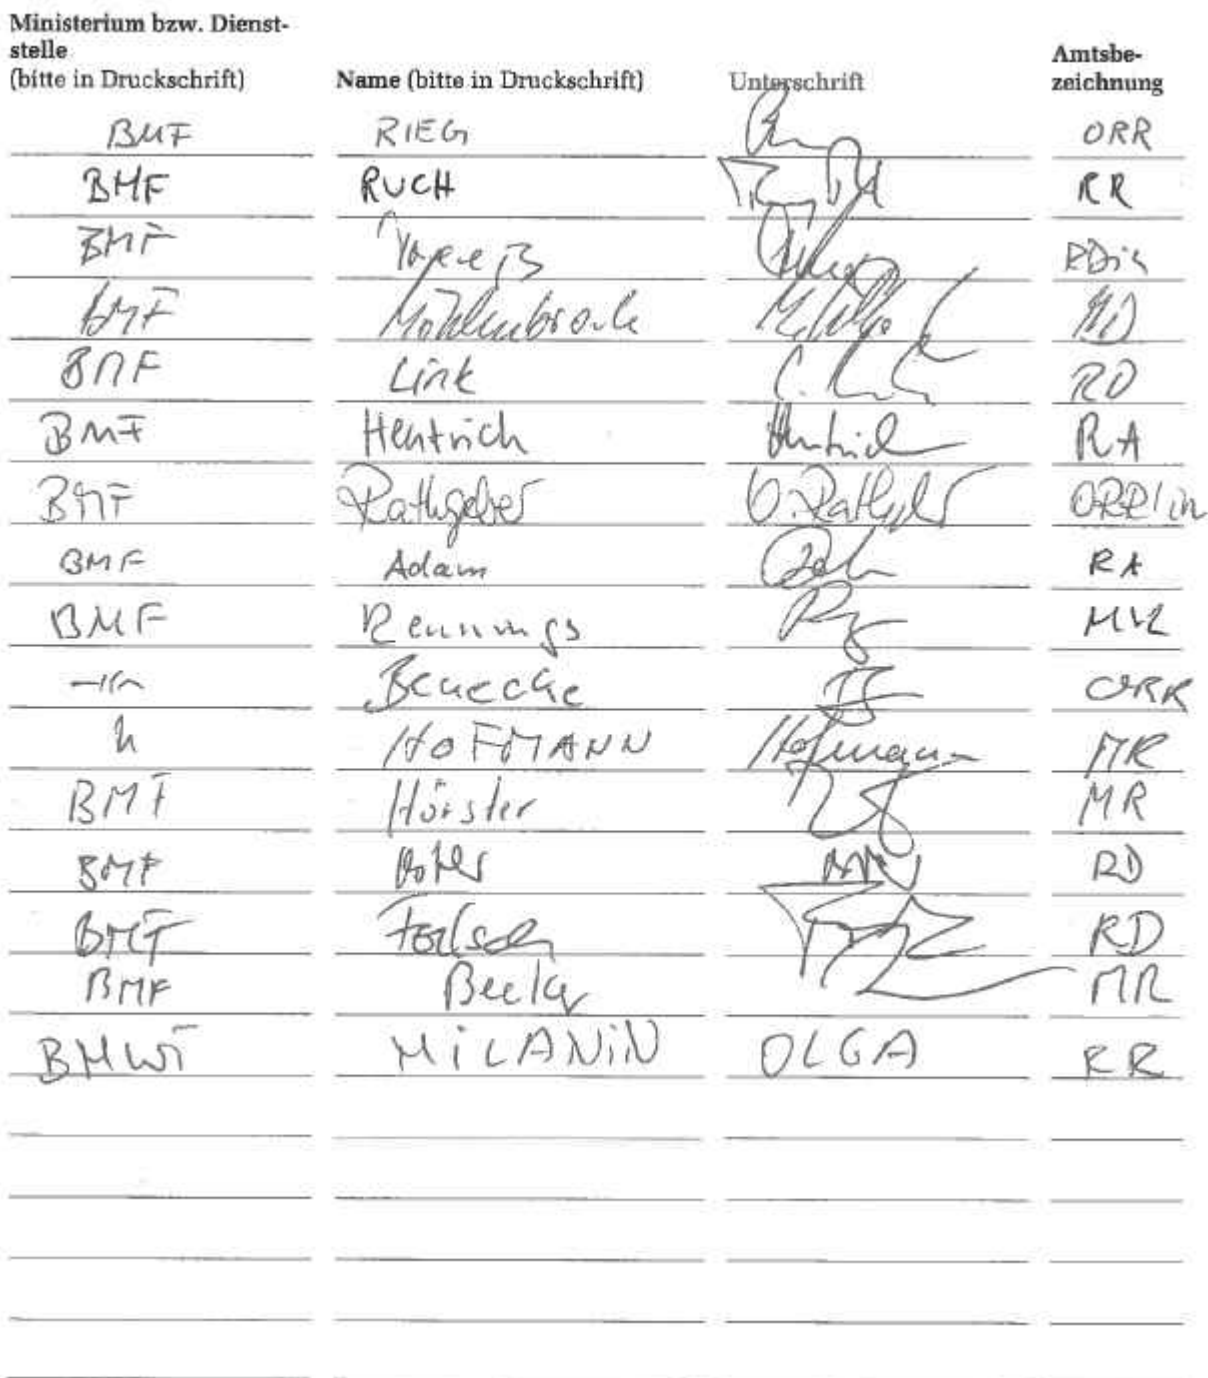 Ministerium bzw. Dienst-
stelle
(bitte in Druckschrift) Name (bitte in Druckschrift) Unterschrift Amtsbe-
zeichnung
BMF RIEG ORR
BMF RUCH RR
BMF RDin
BMF Möhlenbrock MD
BMF Link RD
BMF Hentrich Hentrich RA
BMF Rathgeber U. Rathgeber ORR'in
BMF Adam RA
BMF Rennings MR
Benecke ORR
HOFMANN Hofmann MR
BMF Hörster MR
BMF RD
BMF RD
BMF Becker MR
BMWi MiLANiN OLGA RR